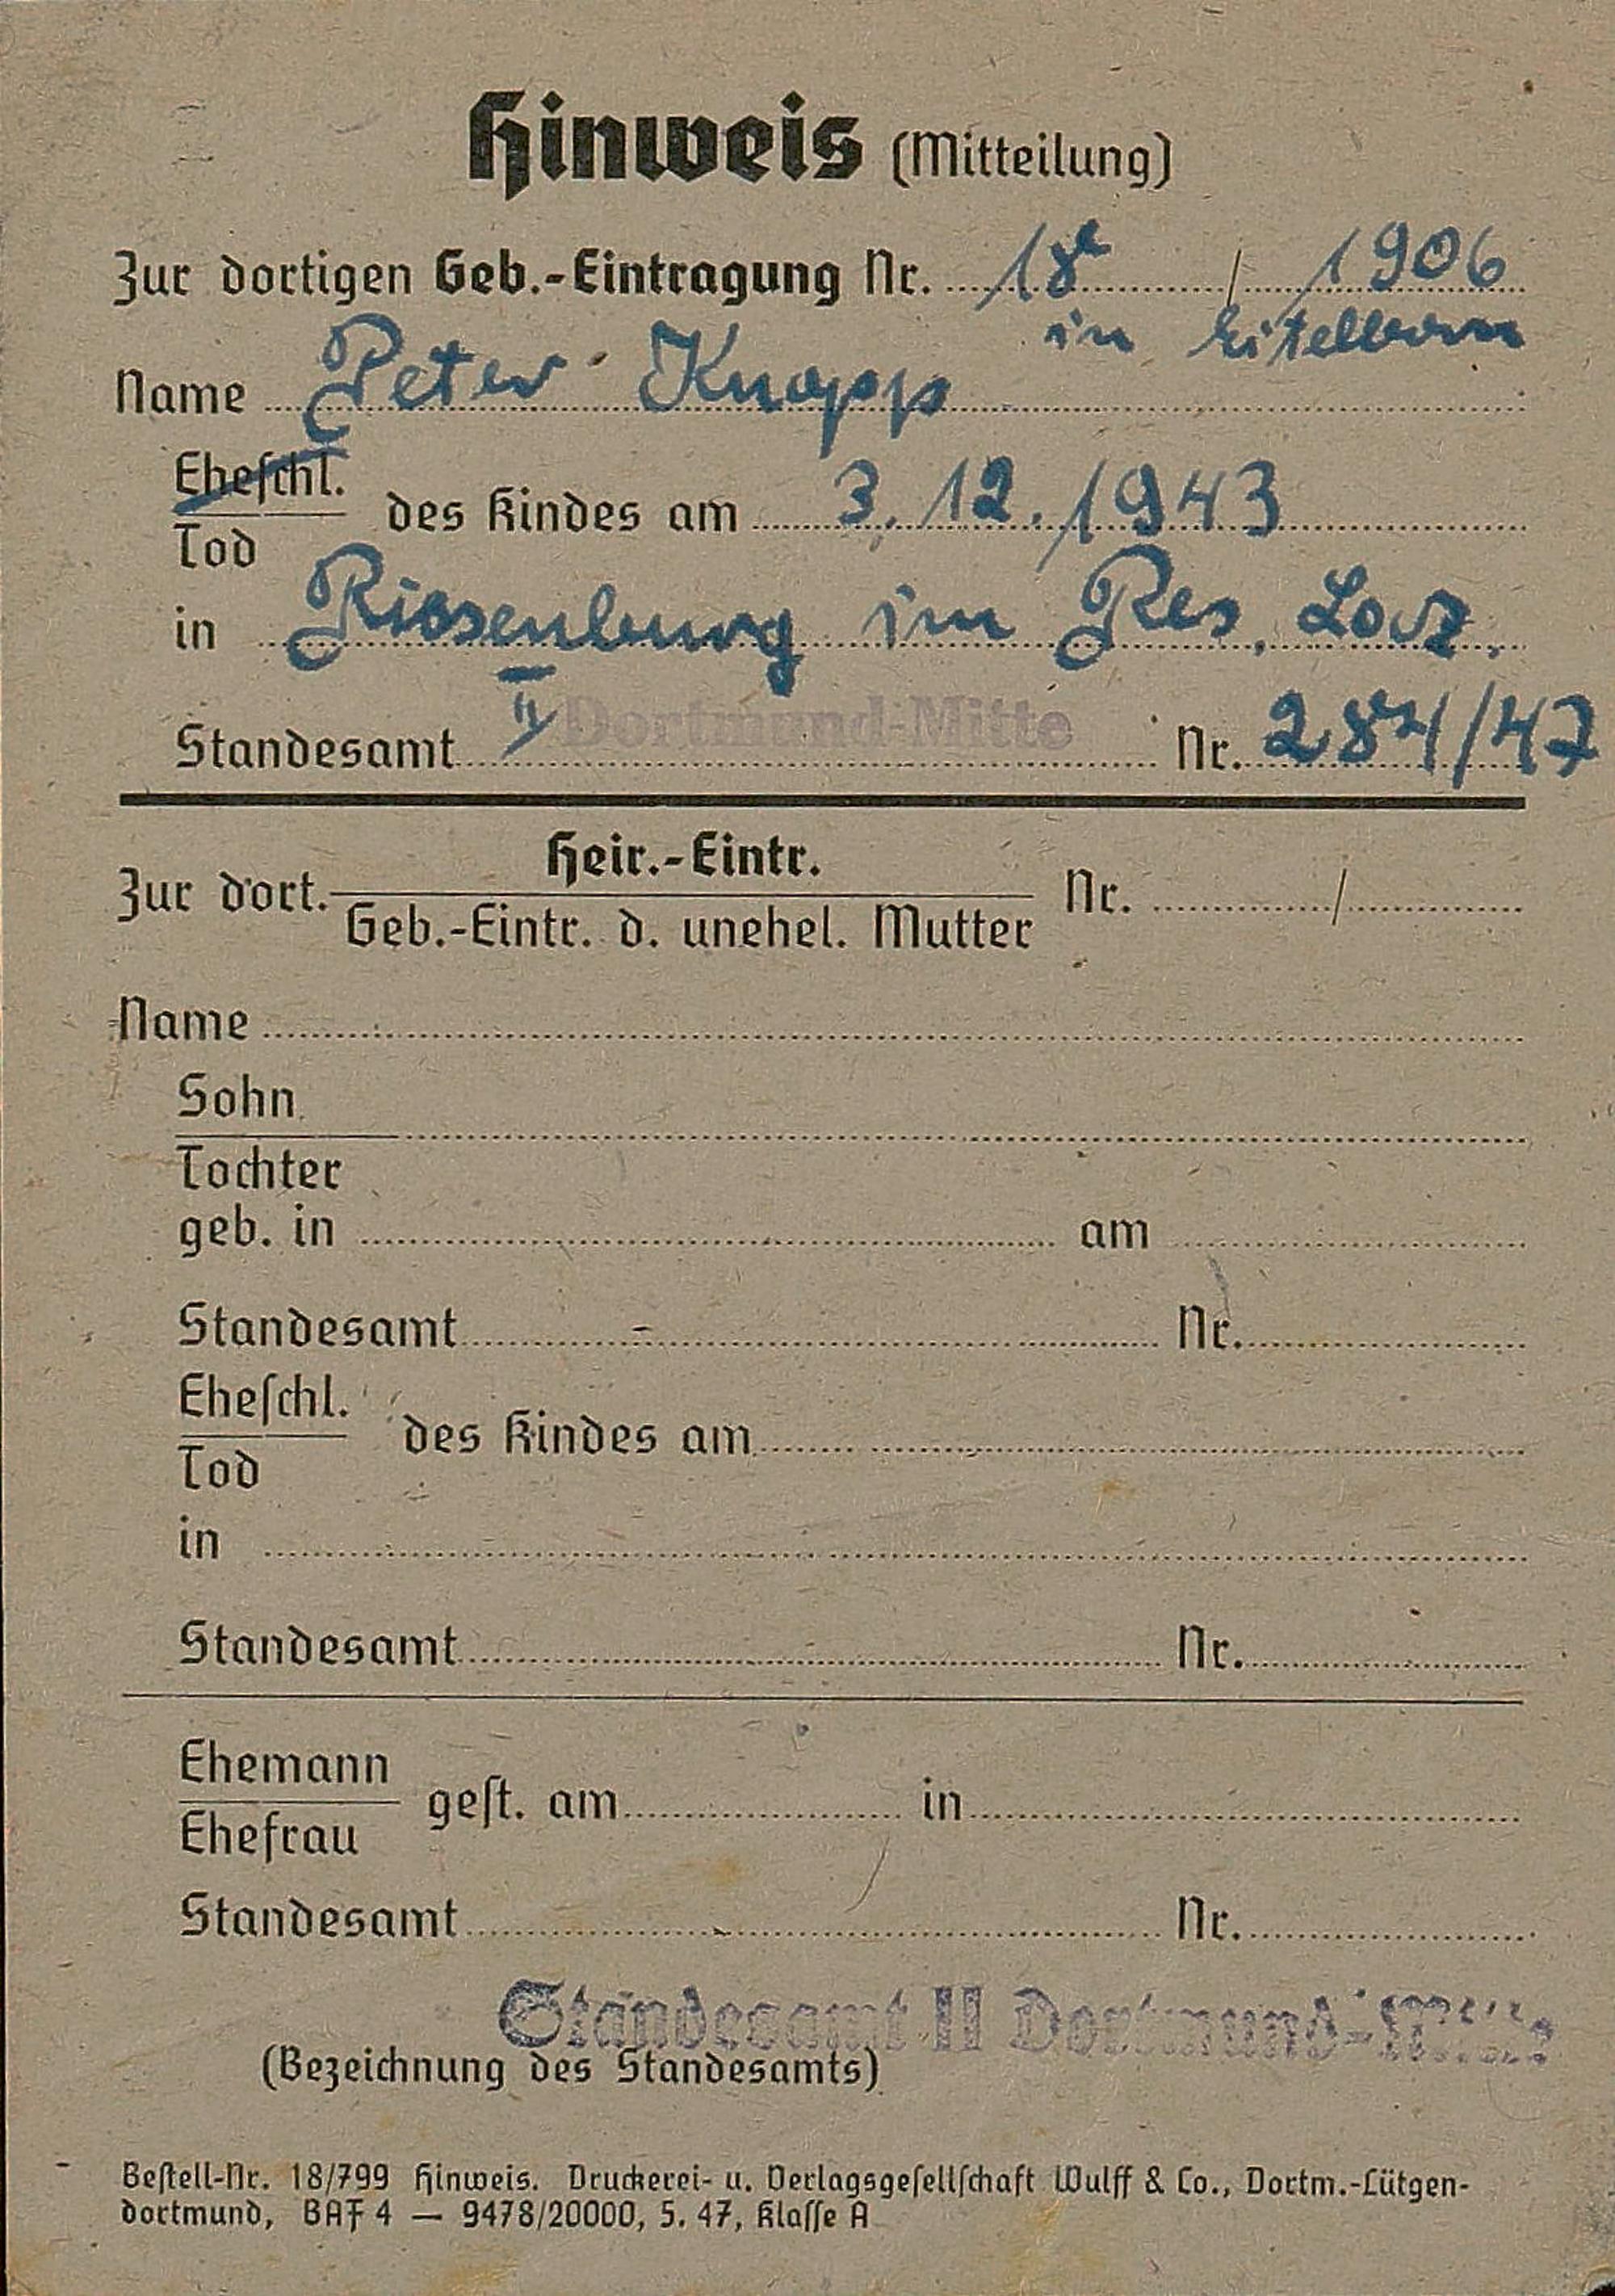 Hinweis (Mitteilung)
Zur dortigen Geb.-Eintragung Nr. 18 / 1906
in Eitelborn
Name Peter Knopp
Eheschl.
Tod
des Kindes am 3.12.1943
in Riesenburg im Res. Laz.
Standesamt II Dortmund-Mitte Nr. 284/47
Zur dort.
Heir.-Eintr.
Geb.-Eintr. d. unehel. Mutter
Nr. /
Name
Sohn
Tochter
geb. in am
Standesamt Nr.
Eheschl.
Tod
des Kindes am
in
Standesamt Nr.
Ehemann
Ehefrau
gest. am in
Standesamt Nr.
Standesamt II Dortmund-Mitte
(Bezeichnung des Standesamts)
Bestell-Nr. 18/799 Hinweis. Druckerei- u. Verlagsgesellschaft Wulff & Co., Dortm.-Lütgen-
dortmund, BAF 4 — 9478/20000, 5. 47, Klasse A